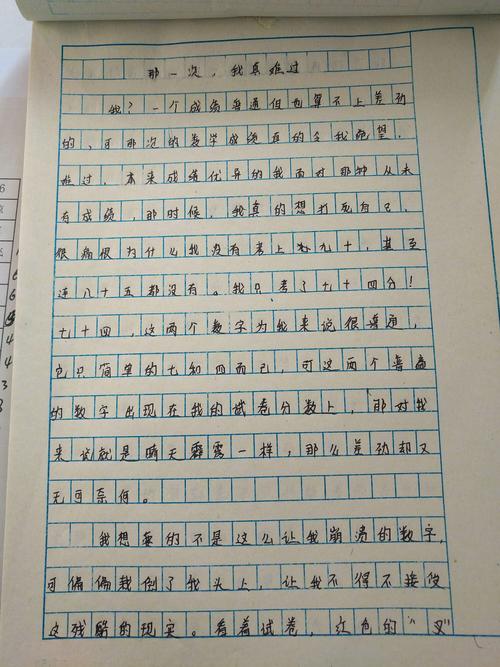 那一次，我真难过
我？一个成绩普通但也算不上差劲
的，可那次的数学成绩真的令我绝望，
难过，本来成绩优异的我面对那种从未
有成绩，那时候，我真的想打死自己，
很痛恨为什么我没有考上九十，甚至
连八十五都没有。我只考了七十四分！
七十四，这两个数字为我来说很普通，
它只简单的七和四而已，可这两个普通
的数字出现在我的试卷分数上，那对我
来说就是晴天霹雳一样，那么差劲却又
无可奈何。
我想要的不是这么让我崩溃的数字，
可偏偏栽倒了我头上，让我不得不接受
这残酷的现实。看着试卷，红色的“叉”
6
4
4
3